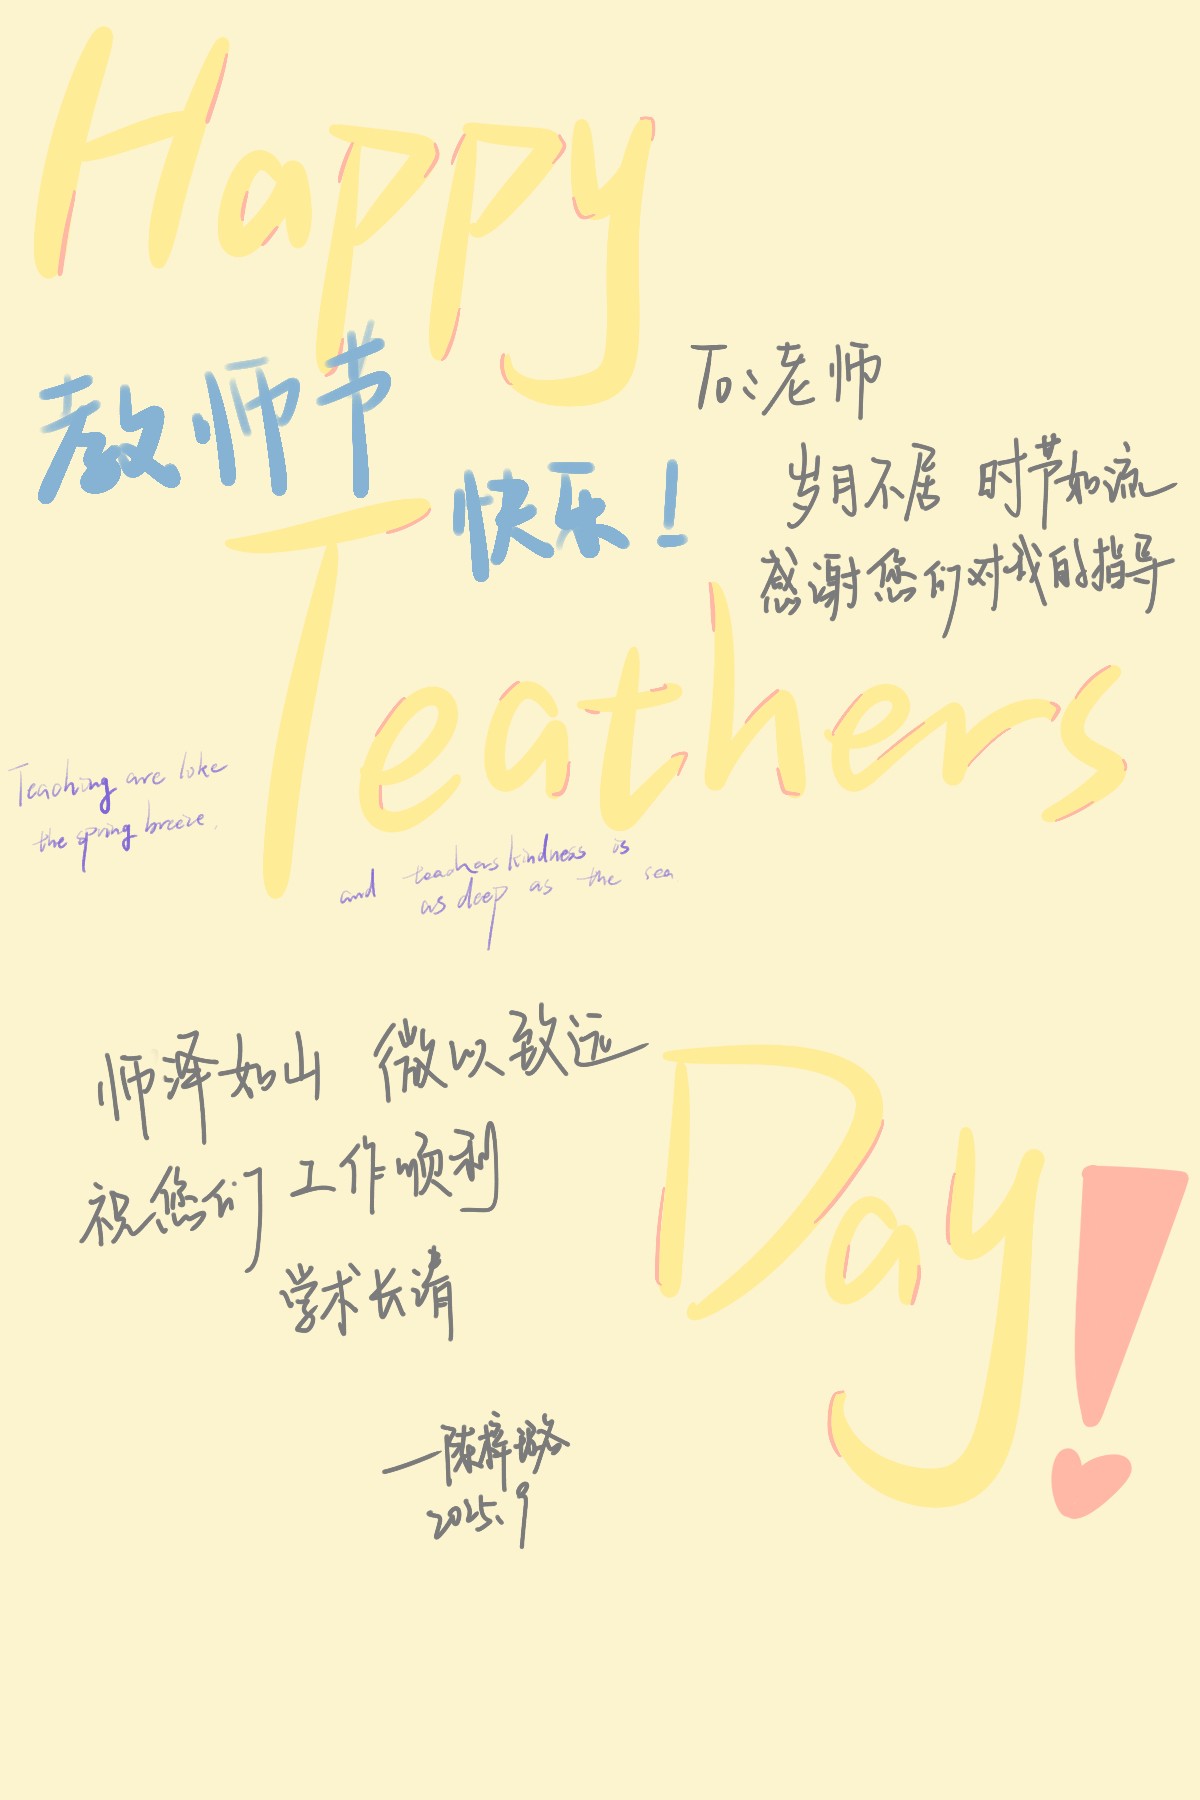 Happy
教师节
快乐！
To:老师
岁月不居 时节如流
感谢您们对我的指导
Teathers
Teaching are loke
the spring breeze.
and teachers kindness is
as deep as the sea
师泽如山 微以致远
祝您们 工作顺利
学术长清
Day!
—陈梓璐
2025.9